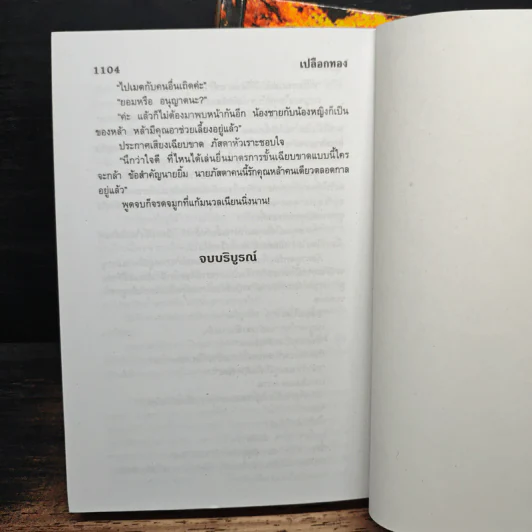 1104 เปลือกทอง
"ไปเมตกับคนอื่นเถิดค่ะ"
"ยอมหรือ อนุญาตนะ?"
"ค่ะ แล้วก็ไม่ต้องมาพบหน้ากันอีก น้องชายกับน้องหญิงก็เป็น
ของหล้า หล้ามีคุณอาช่วยเลี้ยงอยู่แล้ว"
ประกาศเสียงเฉียบขาด ภัสดาหัวเราะชอบใจ
"นึกว่าใจดี ที่ไหนได้เล่นยื่นมาตรการขั้นเฉียบขาดแบบนี้ใคร
จะกล้า ข้อสำคัญนายยิ้ม นายภัสดาคนนี้รักคุณหล้าคนเดียวตลอดกาล
อยู่แล้ว"
พูดจบก็จรดจมูกที่แก้มนวลเนียนนิ่งนาน!
จบบริบูรณ์